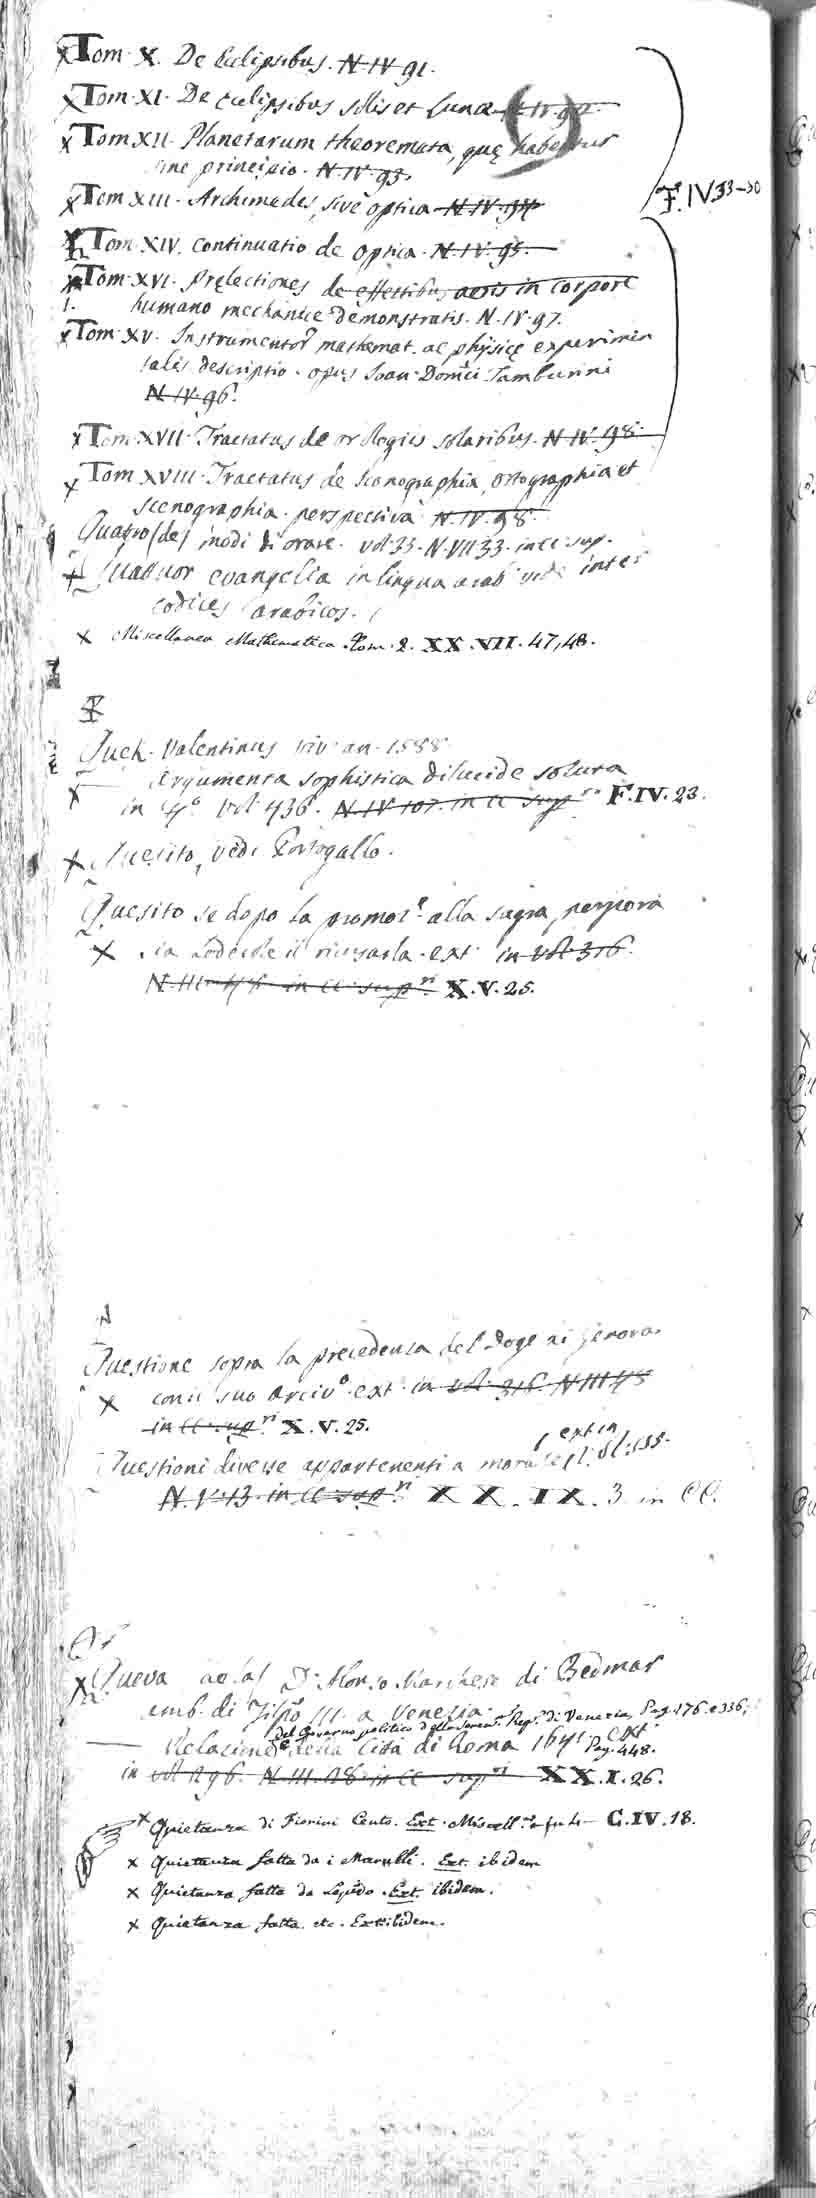 x Tom. X. De Eclipsibus. N. IV 91.
x Tom. XI. De eclipsibus solis et Lunæ N IV. 92.
x Tom XII. Planetarum theoremata, quę habentur
sine principio. N. IV. 93.
x Tom XIII. Archimedes, sive optica N. IV. 94
F. IV 33-
Tom. XIV. Continuatio de optica. N. IV. 95.
Tom. XVI. Prelectiones de effectibus aeris in corpore
humano mechanice demonstratis. N. IV. 97.
x Tom XV. Instrumentor. mathemat. ac physicę experimen
talis descriptio. opus Ioan. Domci Tamburini
N. IV. 96.
x Tom. XVII. Tractatus de orologiis solaribus. N. IV. 98.
x Tom XVIII. Tractatus de Iconographia, ortographia et
scenographia. perspectiva N. IV. 98.
Quatro (de) modi di orare. vol. 33. N. VII 33. in cc. sup.
Quatuor evangelia in lingua arab. vide inter
codices arabicos.
x Miscellanea Mathematica Tom. 2. XX. VII. 47, 48.
Quek. Valentinus viv. an. 1588.
x Argumenta sophistica dilucide soluta
in 4.º Vol. 436. N. IV 107. in cc supri F. IV. 23.
x Quesito, vedi Portogallo.
Quesito se dopo la promoz.e alla sagra porpora
x sia lodevole il ricusarla. ext. in vol. 316.
N. III 48 in cc. supri. X. V. 25.
Questione sopra la precedenza del Doge di Genova
x con suo Arciv.o ext. in vol. 316. N III 48
in cc. supri X. V. 25.
Questioni diverse appartenenti a morale, ext in vol. 555.
N. V. 13. in cc supri. XX. IX. 3 in CC.
x Queva D. Alonso Marchese di Bedmar
amb. di Filipo III. a Venezia.
del Governo politico della Seren.a Rep.a di Venezia, Pag. 176. e 336.
Relazione della Città di Roma 1641. ext. Pag. 448.
in vol 296. N. III. 28. in cc supri XX. I. 26.
x Quietanza di Fiorini Cento. Ext. Miscell. C. IV. 18.
x Quietanza fatta da i Marulli. Ext. ibidem
x Quietanza fatta da Lepido. Ext. ibidem.
x Quietanza fatta etc. Ext. ibidem.